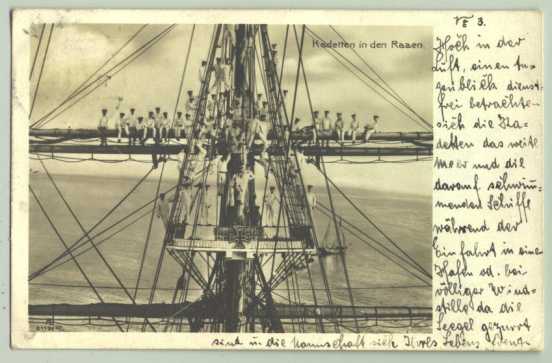 VII 3.
Kadetten in den Raaen
Hoch in der
Luft, einen Au-
genblick dienst-
frei betrachten
sich die Ka-
detten das weite
Meer und die
darauf schwim-
menden Schiffe
während der
Einfahrt in einen
Hafen od. bei
völliger Wind-
stille, da die
Seegel gezurrt
sind u die Mannschaft sich Ihres Lebens